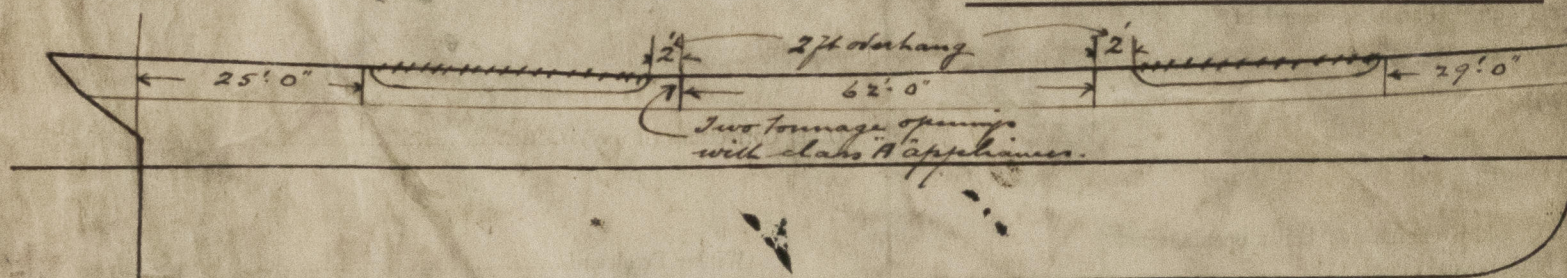 2' 2ft overhang 2'
25'.0" 62'.0" 29'.0"
Two tonnage openings
with class "A" appliances.